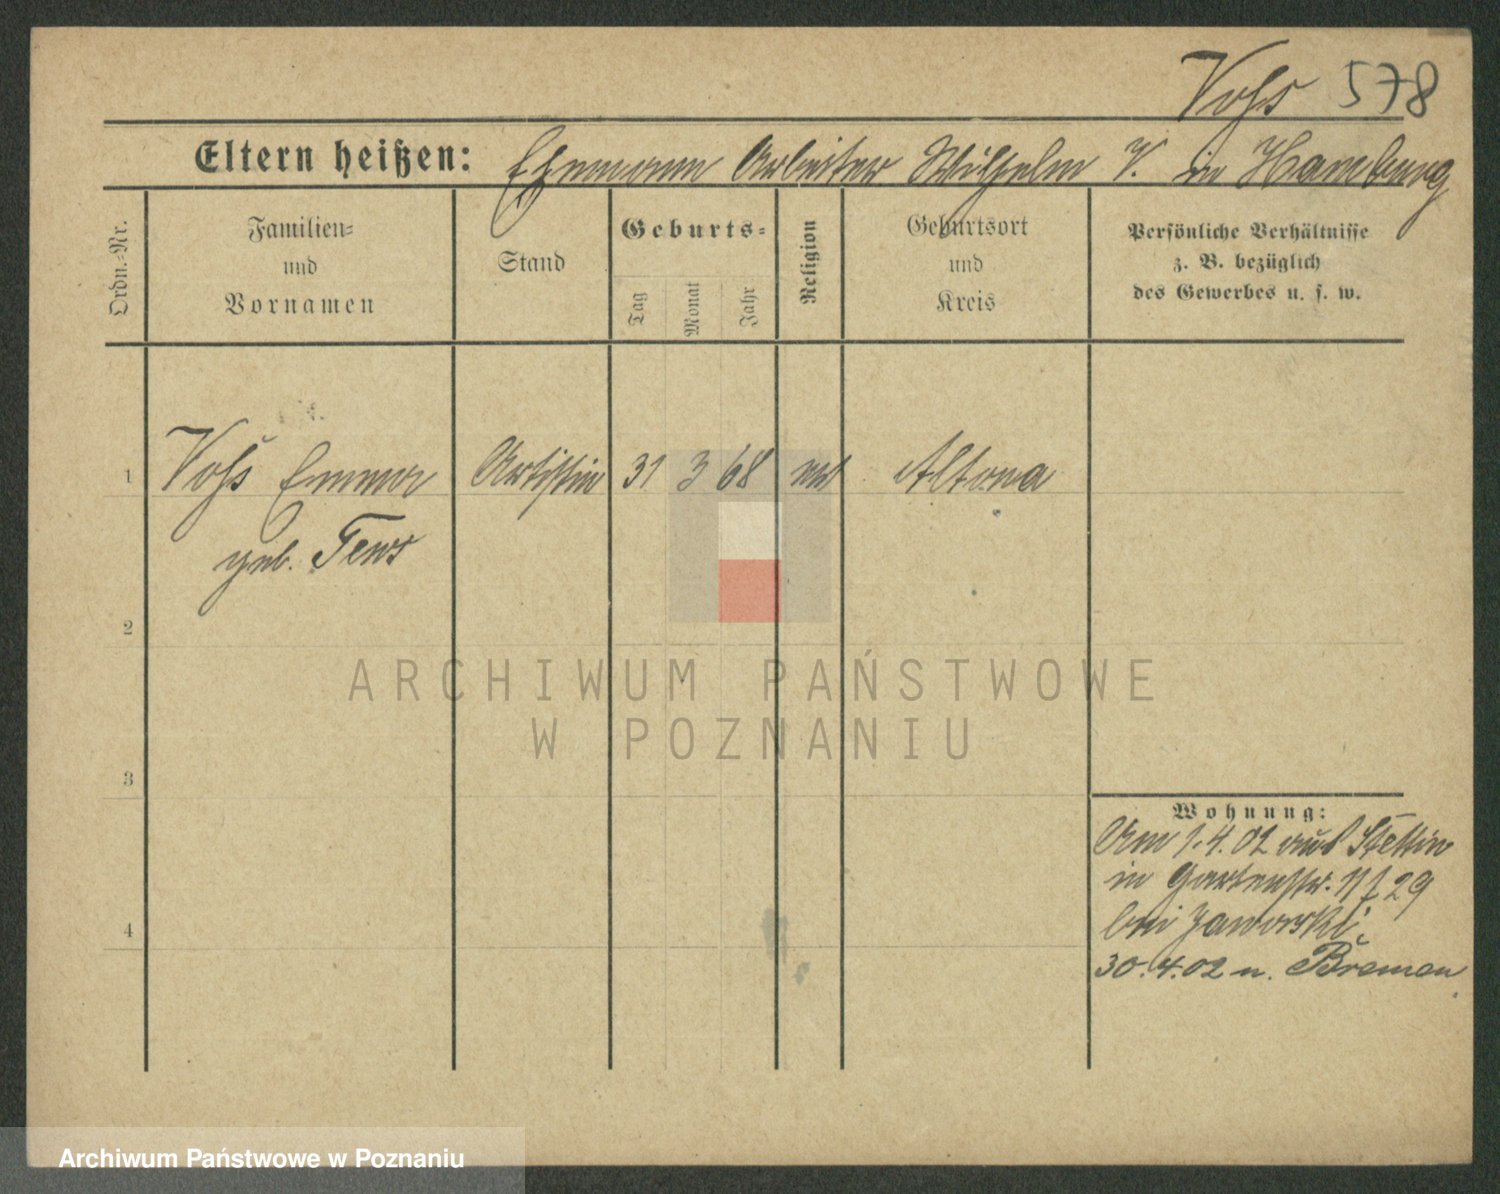 Voß 578
Eltern heißen: Ehemann Arbeiter Wilhelm V. in Hamburg
Ordn.-Nr.
Familien-
und
Vornamen
Stand
Geburts-
Tag
Monat
Jahr
Religion
Geburtsort
und
Kreis
Persönliche Verhältnisse
z. B. bezüglich
des Gewerbes u. s. w.
1 Voß Emma Artistin 31 3 68 ev Altona
geb. Tews
2
3
4
Wohnung:
Am 1.4.02 aus Stettin
in Gartenstr.
bei Jaworski
30.4.02 n. Bremen
ARCHIWUM PAŃSTWOWE
W POZNANIU
Archiwum Państwowe w Poznaniu